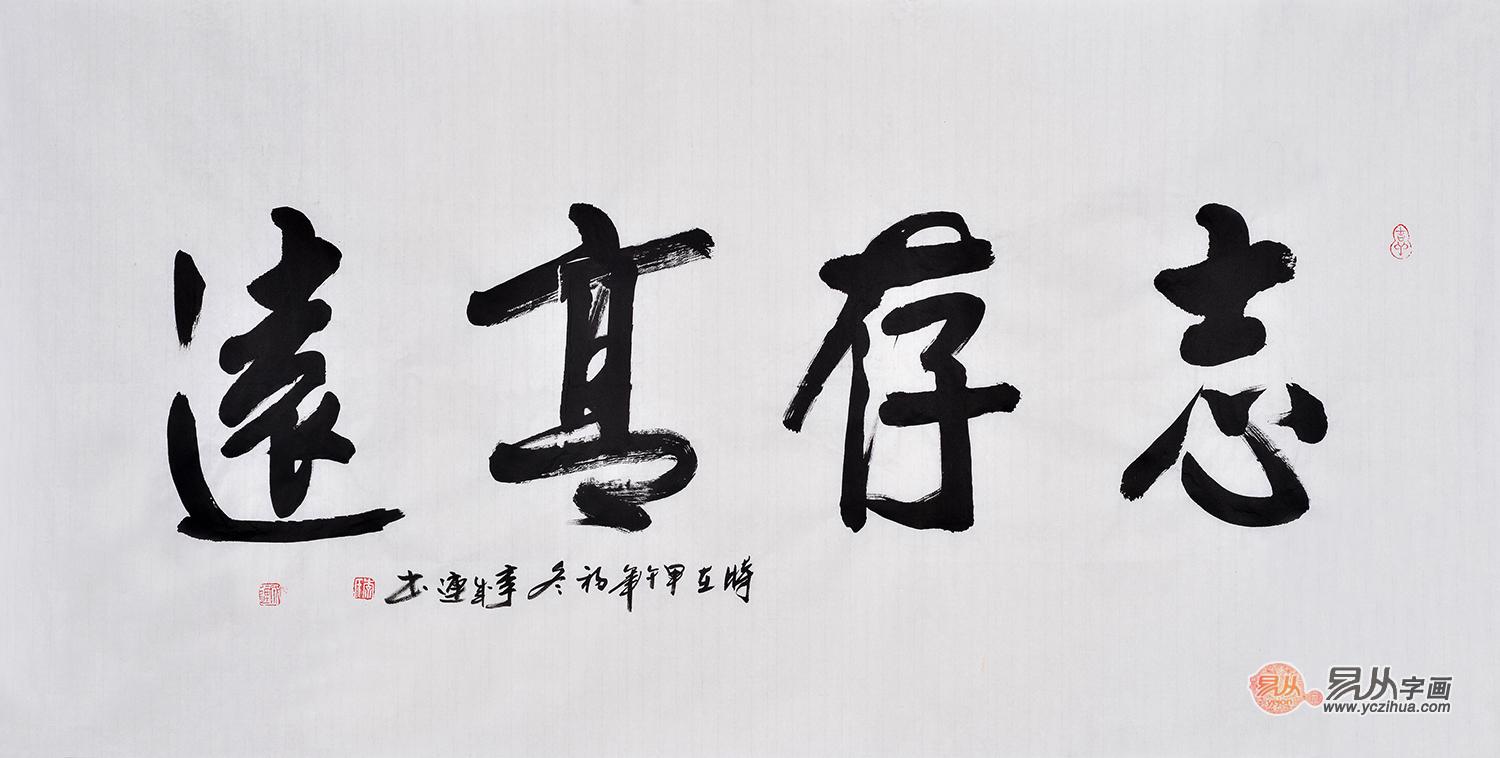 志存高遠
時在甲午年初冬李成連书
易从字画
www.yczihua.com
易从